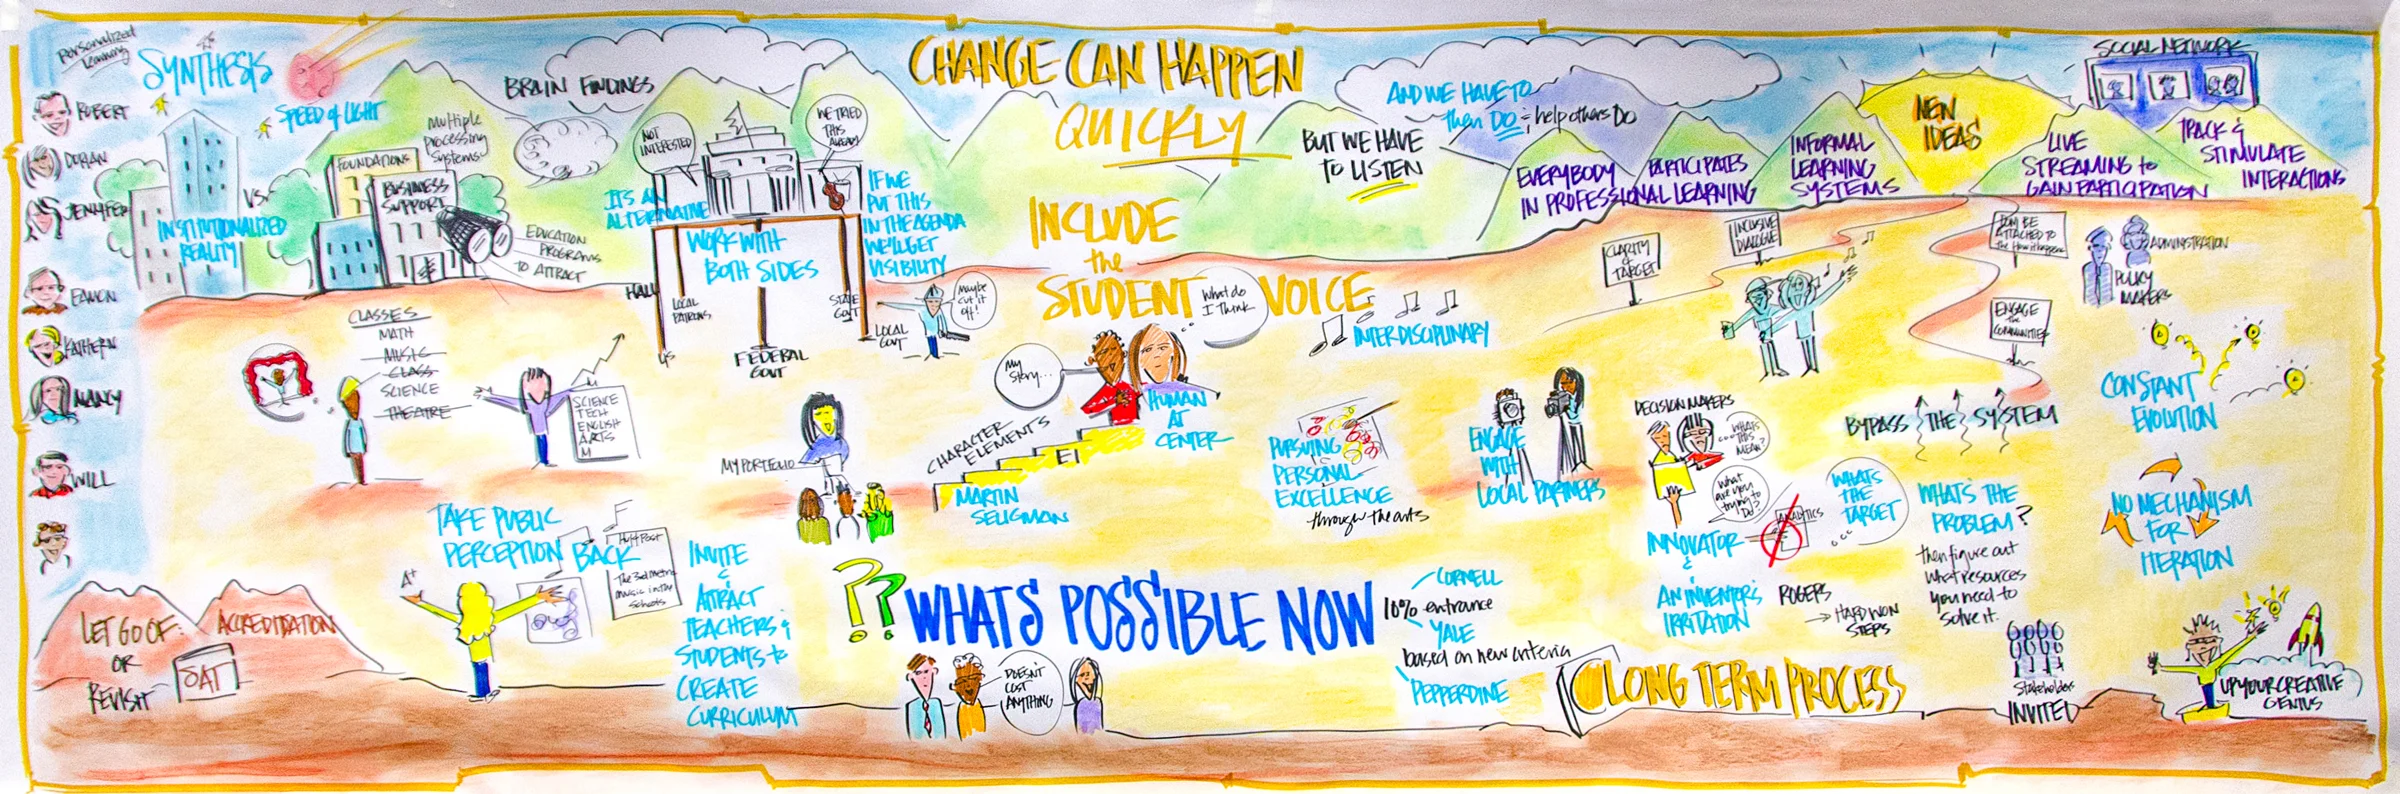 Personalized
Learning
SYNTHESIS
SPEED of LIGHT
ROBERT
DORIAN
JENNIFER
EAMON
KATHERN
NANCY
WILL
VS.
INSTITUTIONALIZED
REALITY
FOUNDATIONS
BUSINESS
SUPPORT
Multiple
Processing
Systems
BRAIN FINDINGS
EDUCATION
PROGRAMS
TO ATTRACT
NOT
INTERESTED
WE TRIED
THIS
ALREADY
ITS AN
ALTERNATIVE
WORK WITH
BOTH SIDES
IF WE
PUT THIS
IN THE AGENDA
WE'LL GET
VISIBILITY
HALL
LOCAL
PATRONS
US
FEDERAL
GOVT
STATE
GOVT
LOCAL
GOVT
Maybe
cut it
off!
CHANGE CAN HAPPEN
QUICKLY
INCLUDE
the
STUDENT VOICE
What do
I Think
My
Story...
HUMAN
AT
CENTER
BUT WE HAVE
TO LISTEN
AND WE HAVE TO
then DO & help others Do
EVERYBODY PARTICIPATES
IN PROFESSIONAL LEARNING
INFORMAL
LEARNING
SYSTEMS
NEW
IDEAS
LIVE
STREAMING to
GAIN PARTICIPATION
SOCIAL NETWORK
TRACK &
STIMULATE
INTERACTIONS
INTERDISCIPLINARY
CLARITY
of
TARGET
INCLUSIVE
DIALOGUE
CAN BE
ATTACHED TO
the How it happens
ENGAGE
the
COMMUNITIES
ADMINISTRATION
POLICY
MAKERS
CLASSES
MATH
MUSIC
CLASS
SCIENCE
THEATRE
SCIENCE
TECH
ENGLISH
ARTS
M
MY PORTFOLIO
CHARACTER
ELEMENTS
EI
MARTIN
SELIGMAN
PURSUING
PERSONAL
EXCELLENCE
through the arts
ENGAGE
WITH
LOCAL PARTNERS
DECISION MAKERS
WHATS
THIS
MEAN?
What
are you
trying to
Do?
INNOVATOR
&
AN INVENTOR'S
IRRITATION
ANALYTICS
WHATS
THE
TARGET
ROGERS
HARD WON
STEPS
BYPASS THE SYSTEM
WHAT'S THE
PROBLEM?
then figure out
what resources
you need to
solve it.
CONSTANT
EVOLUTION
NO MECHANISM
FOR
ITERATION
LET GO OF:
OR
REVISIT
ACCREDITATION
SAT
TAKE PUBLIC
PERCEPTION BACK
A+
HuffPost
The 3rd metric
music in the
schools
INVITE
&
ATTRACT
TEACHERS &
STUDENTS to
CREATE
CURRICULUM
?? WHATS POSSIBLE NOW
DOESN'T
COST
ANYTHING
CORNELL
10% entrance
YALE
based on new criteria
PEPPERDINE
LONG TERM PROCESS
Stakeholders
INVITED
UP YOUR CREATIVE
GENIUS